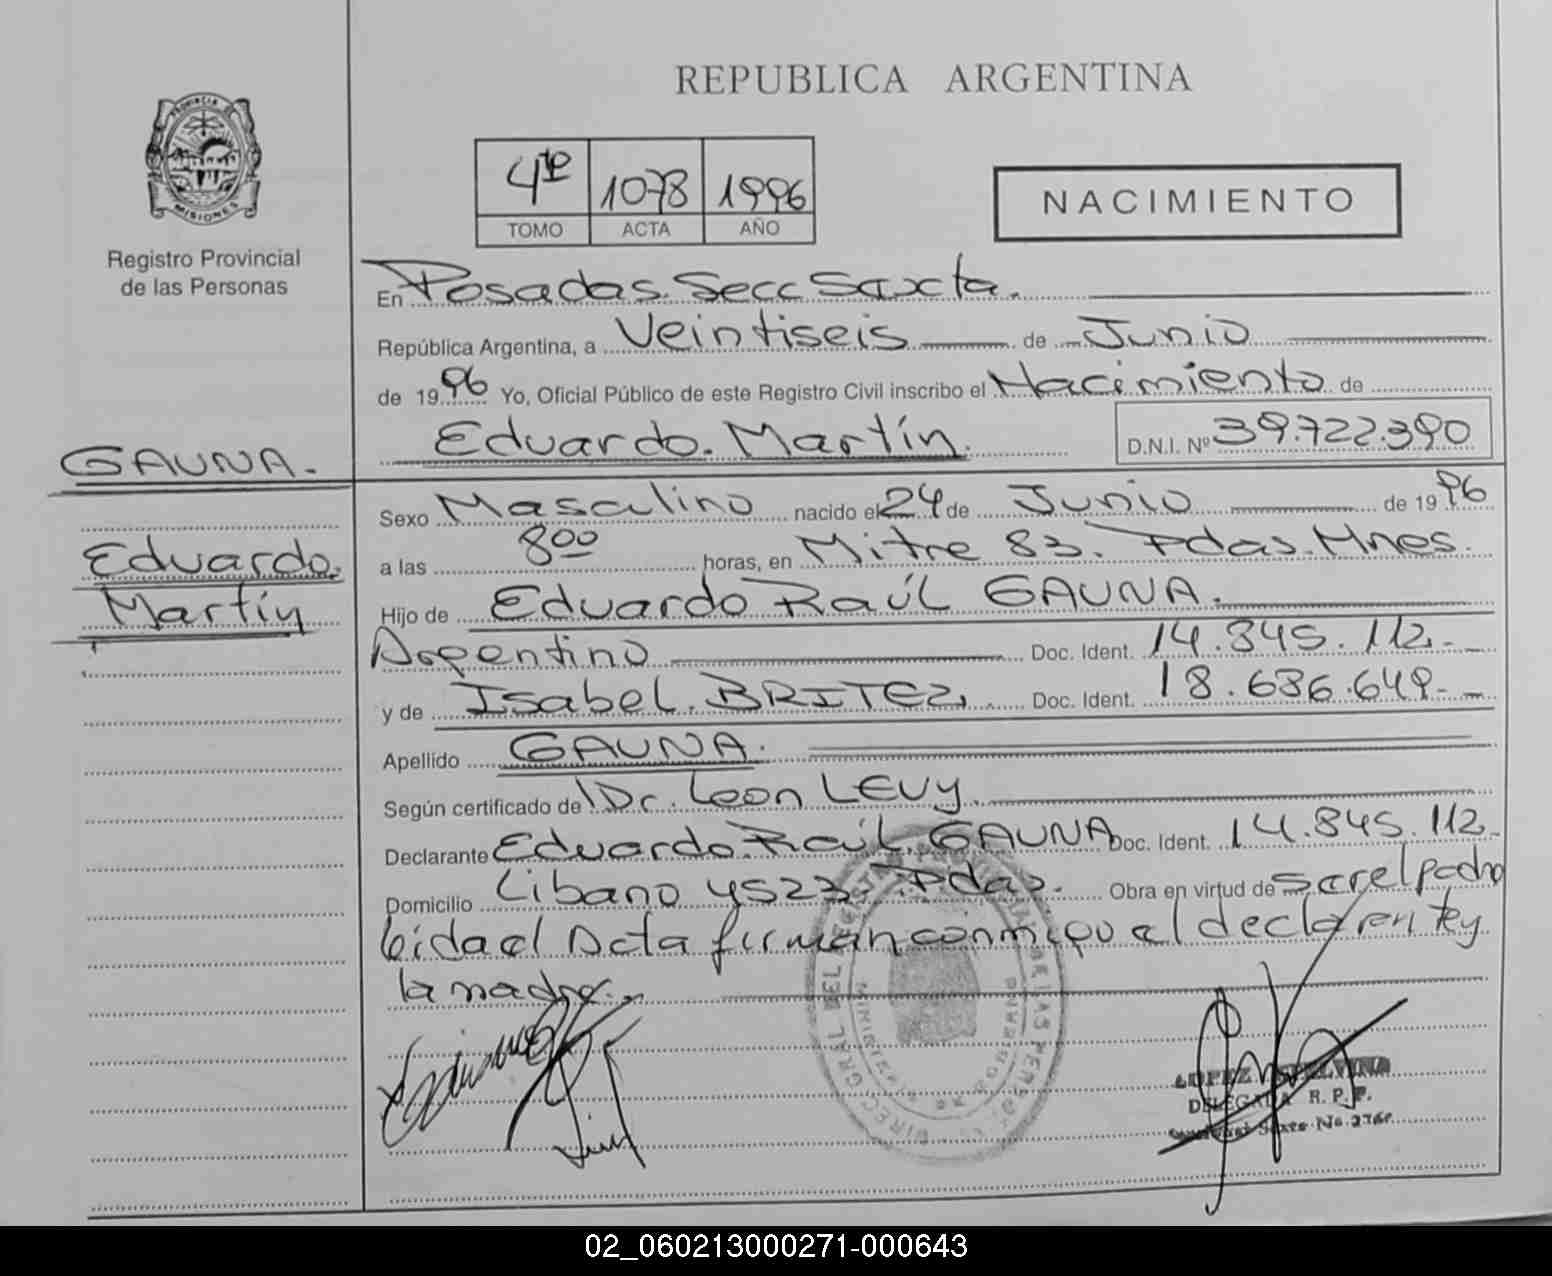 REPUBLICA ARGENTINA
PROVINCIA DE
MISIONES
Registro Provincial
de las Personas
4to 1078 1996
TOMO ACTA AÑO
NACIMIENTO
En Posadas. Secc Saxta.
República Argentina, a Veintiseis de Junio
de 1996 Yo, Oficial Público de este Registro Civil inscribo el Nacimiento de
Eduardo. Martín. D.N.I. Nº 39.722.390
GAUNA.
Eduardo.
Martín
Sexo Masculino nacido el 24 de Junio de 1996
a las 8 00 horas, en Mitre 83. Pdas. Mnes.
Hijo de Eduardo Raúl GAUNA.
Argentino Doc. Ident. 14.845.112.
y de Isabel. BRITEZ, Doc. Ident. 18.686.649.
Apellido GAUNA.
Según certificado de Dr. Leon LEVY.
Declarante Eduardo. Raúl. GAUNA Doc. Ident. 14.845.112.
Domicilio Libano 4523. Pdas. Obra en virtud de ser el padre
leida el Acta firman conmigo el declarente y
la madre.
LOPEZ
DELEGADA R. P. P.
02_060213000271-000643